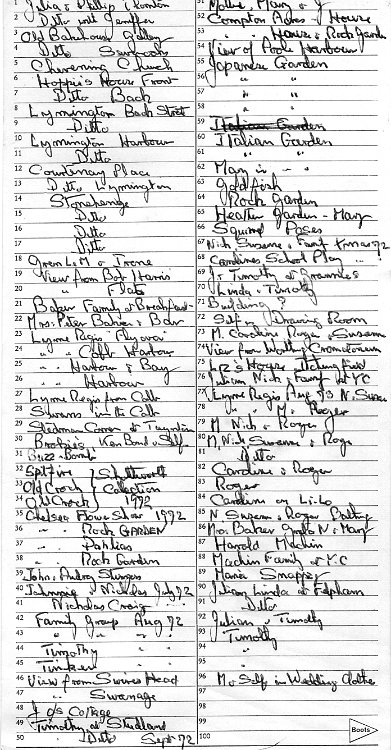 1 Julia & Phillip
2 Ditto with Jennifer
3 Old Bakehouse Gallery
4 Ditto
5 Church
6 House Front
7 Ditto Back
8 Lymington Back Street
9 Ditto
10 Lymington Harbour
11 Ditto
12 Courtenay Place
13 Ditto Lymington
14 Stonehenge
15 Ditto
16 Ditto
17 Ditto
18 M & Irene
19 View from Bob Harris
20 " Flats
21 Baker Family at Breakfast
22 Mrs. Peter Baker &
23 Lyme Regis
24 " " Cobb Harbour
25 " " Harbour & Bay
26 " Harbour
27 Lyme Regis from Cobb
28 Swans in the Cobb
29
30 Ken Bond & Self
31 Buzz-Bomb
32 Spitfire } Shuttleworth
33 Old Crock } Collection
34 Old Crock } 1992
35 Chelsea Flower Show 1992
36 " " Rock GARDEN
37 " " Dahlias
38 " " Rock Garden
39 John & Audrey Sturgess
40 & Nicholas July 92
41 Nicholas Craig
42 Family group Aug 92
43 " " "
44 Timothy
45
46 View from Head
47 " Swanage
48 Cottage
49 Timothy at Studland
50 " Ditto Sept 92
51 Mollie, Mary & J
52 Compton Acres & House
53 " House & Rock Garden
54 View of Poole Harbour
55 Japanese Garden
56 " "
57 " "
58
59 Italian Garden
60 Italian Garden
61 " "
62 Mary in " "
63 Goldfish
64 Rock Garden
65 Heather Garden - Mary
66 Squirrel Poses
67 Nick Susanne & Fanf Xmas 92
68 Carolines School Play
69 Timothy at Grannies
70 Linda & Timothy
71 Building?
72 Self in Drawing Room
73 M. Caroline Roger & Susanne
74 View from Worthing Crematorium
75 House
76 Julian Nick & Fanf at YC
77 Lyme Regis Aug 93 N. Susan
78 " " M. Roger
79 M Nick & Roger
80 M, Nick Susanne & Roge
81 Ditto
82 Caroline & Roger
83 Roger
84 Caroline on Li-Lo
85 N Susann & Roger
86 Mrs Baker N & Mary
87 Harold Machin
88 Machin Family at Y.C
89 Maria
90 Julian Linda at Felpham
91 Ditto
92 Julian & Timothy
93 Timothy
94 "
95 "
96 M & Self in Wedding Clothe
97
98
99
100
Boots